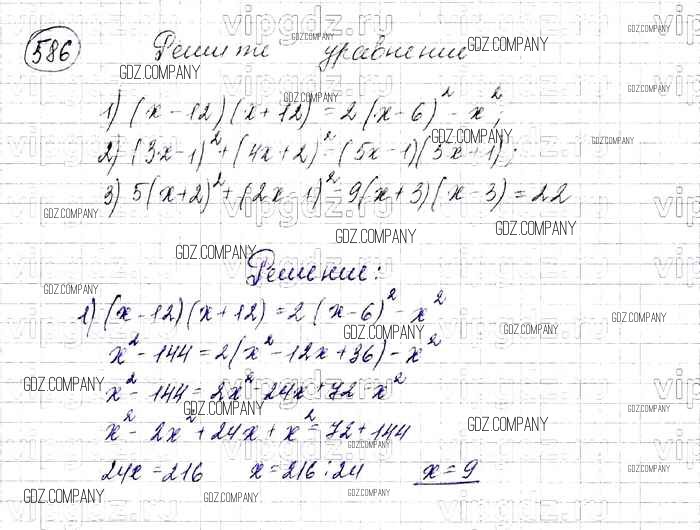 586 Решите уравнение
1) (x - 12)(x + 12) = 2(x - 6)² - x²;
2) (3x - 1)² + (4x + 2)² = (5x - 1)(5x + 1);
3) 5(x + 2)² + (2x - 1)² - 9(x + 3)(x - 3) = 22
Решение:
1) (x - 12)(x + 12) = 2(x - 6)² - x²
x² - 144 = 2(x² - 12x + 36) - x²
x² - 144 = 2x² - 24x + 72 - x²
x² - 2x² + 24x + x² = 72 + 144
24x = 216 x = 216 : 24 x = 9
vipgdz.ru
GDZ.COMPANY